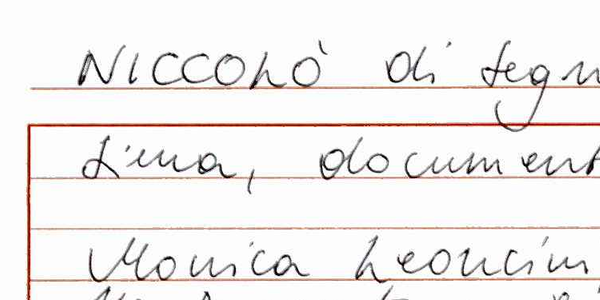 NICCOLÒ di segn
Lima, document
Monica Leoncini